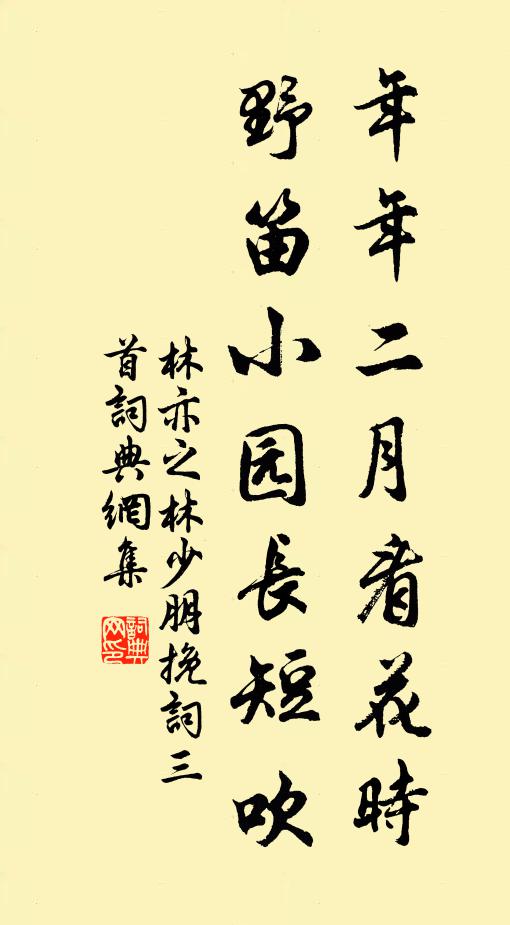 年年二月看花時
野笛小园長短吹
林亦之林少朋挽詞三
首詞典網集
詞典網印